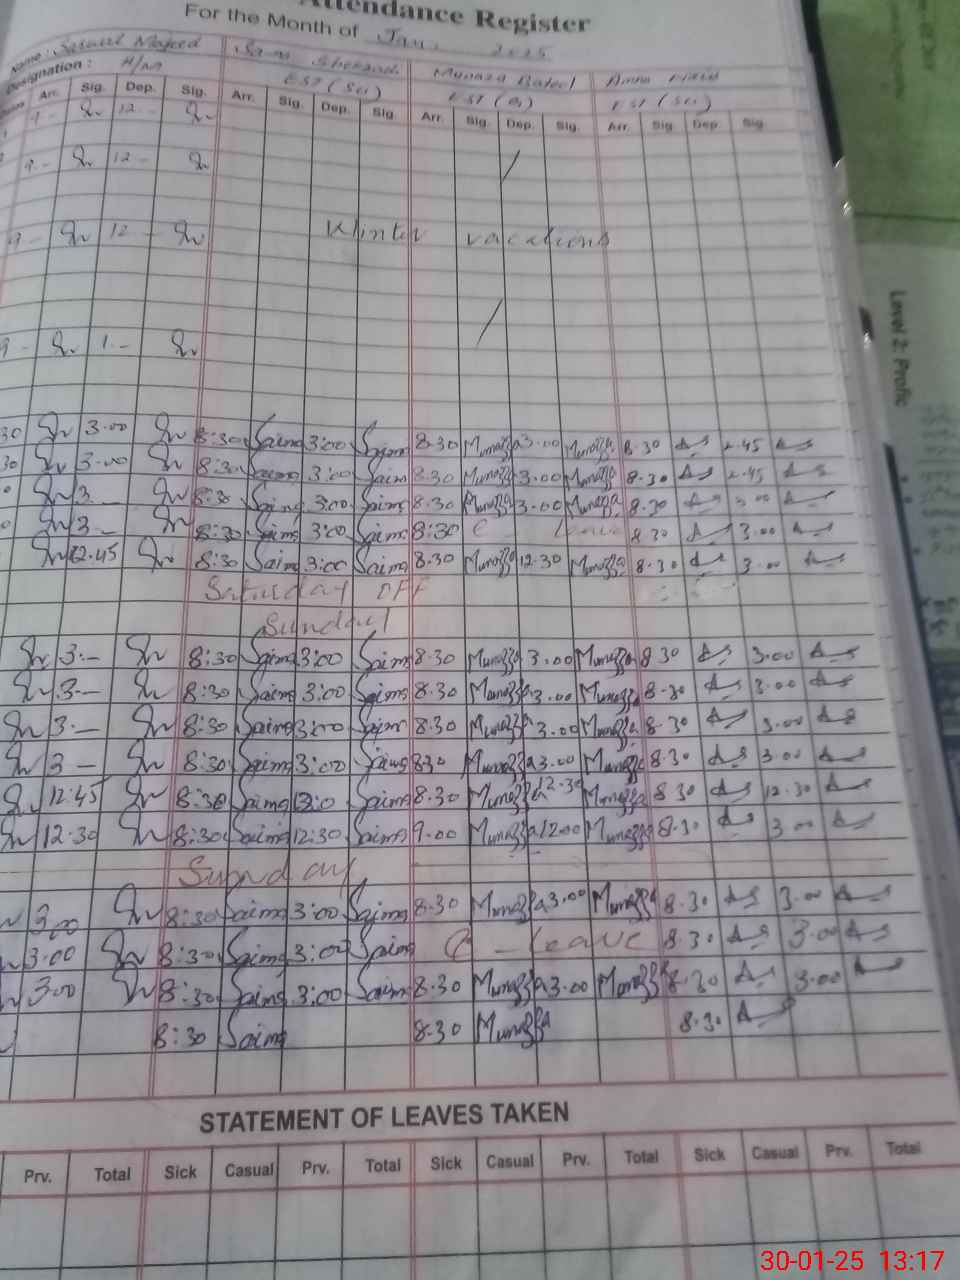 Attendance Register
For the Month of Jan. 2025
Name: Majeed Shehzadi Batool Amna
Designation: H/M EST (Sci) EST (A) EST (Sci)
Arr. Sig. Dep. Sig. Arr. Sig. Dep. Sig. Arr. Sig. Dep. Sig. Arr. Sig. Dep. Sig
9.- 12-
9.- 12-
9- 12-
Winter vacations
9- 1.-
30 3.00 8:30 Saima 3:00 Saima 8.30 Munazza 3.00 Munazza 8.30 2.45
30 3.00 8:30 Saima 3:00 Saima 8.30 Munazza 3.00 Munazza 8.30 2.45
3 8:30 Saima 3:00 Saima 8.30 Munazza 3.00 Munazza 8.30 3.00
3- 8:30 Saima 3:00 Saima 8:30 C Leave 8.30 3.00
12.45 8:30 Saima 3:00 Saima 8.30 Munazza 12.30 Munazza 8.30 3.00
Saturday OFF
Sunday
3.- 8:30 Saima 3:00 Saima 8.30 Munazza 3.00 Munazza 8.30 3.00
3- 8:30 Saima 3:00 Saima 8.30 Munazza 3.00 Munazza 8.30 3.00
3.- 8:30 Saima 3:00 Saima 8.30 Munazza 3.00 Munazza 8.30 3.00
3- 8:30 Saima 3:00 Saima 8.30 Munazza 3.00 Munazza 8.30 3.00
12.45 8:30 Saima Saima 8.30 Munazza 12.30 Munazza 8.30 12.30
12.30 8:30 Saima 12:30 Saima 9.00 Munazza 12.00 Munazza 8.30 3.00
Sunday
3.00 8:30 Saima 3:00 Saima 8.30 Munazza 3.00 Munazza 8.30 3.00
3.00 8:30 Saima 3:00 Saima C - Leave 8.30 3.00
3.00 8:30 Saima 3:00 Saima 8.30 Munazza 3.00 Munazza 8.30 3.00
8:30 Saima 8.30 Munazza 8.30
STATEMENT OF LEAVES TAKEN
Prv. Total Sick Casual Prv. Total Sick Casual Prv. Total Sick Casual Prv. Total
Level 2: Profic
30-01-25 13:17